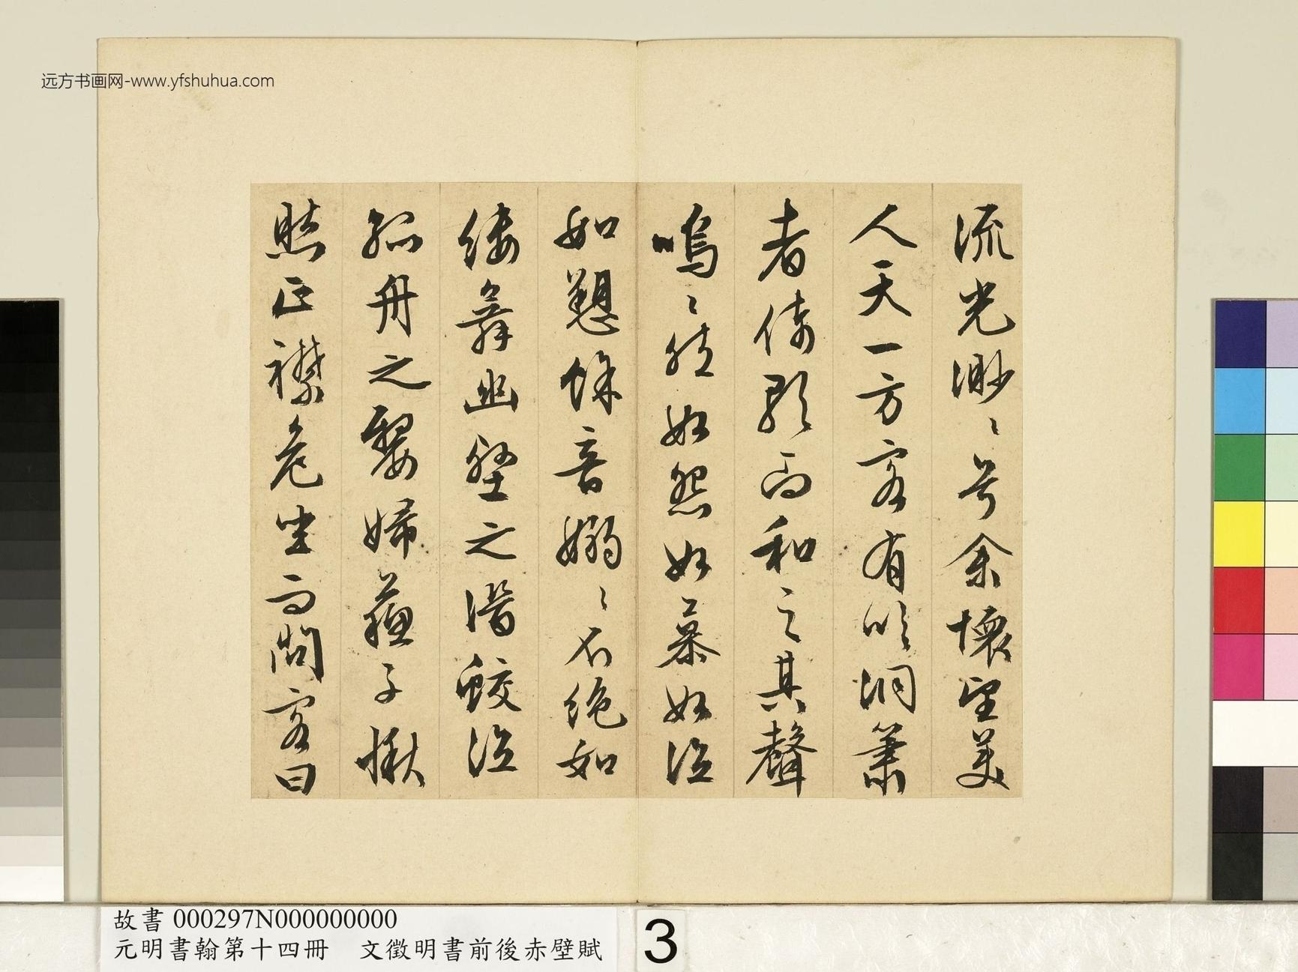 远方书画网-www.yfshuhua.com
流光渺〻兮余懷望美
人天一方客有吹洞簫
者倚歌而和之其聲
嗚〻然如怨如慕如泣
如愬餘音嫋〻不絕如
縷舞幽壑之潛蛟泣
孤舟之嫠婦蘇子愀
然正襟危坐而問客曰
故書 000297N000000000
元明書翰第十四冊 文徵明書前後赤壁賦
3